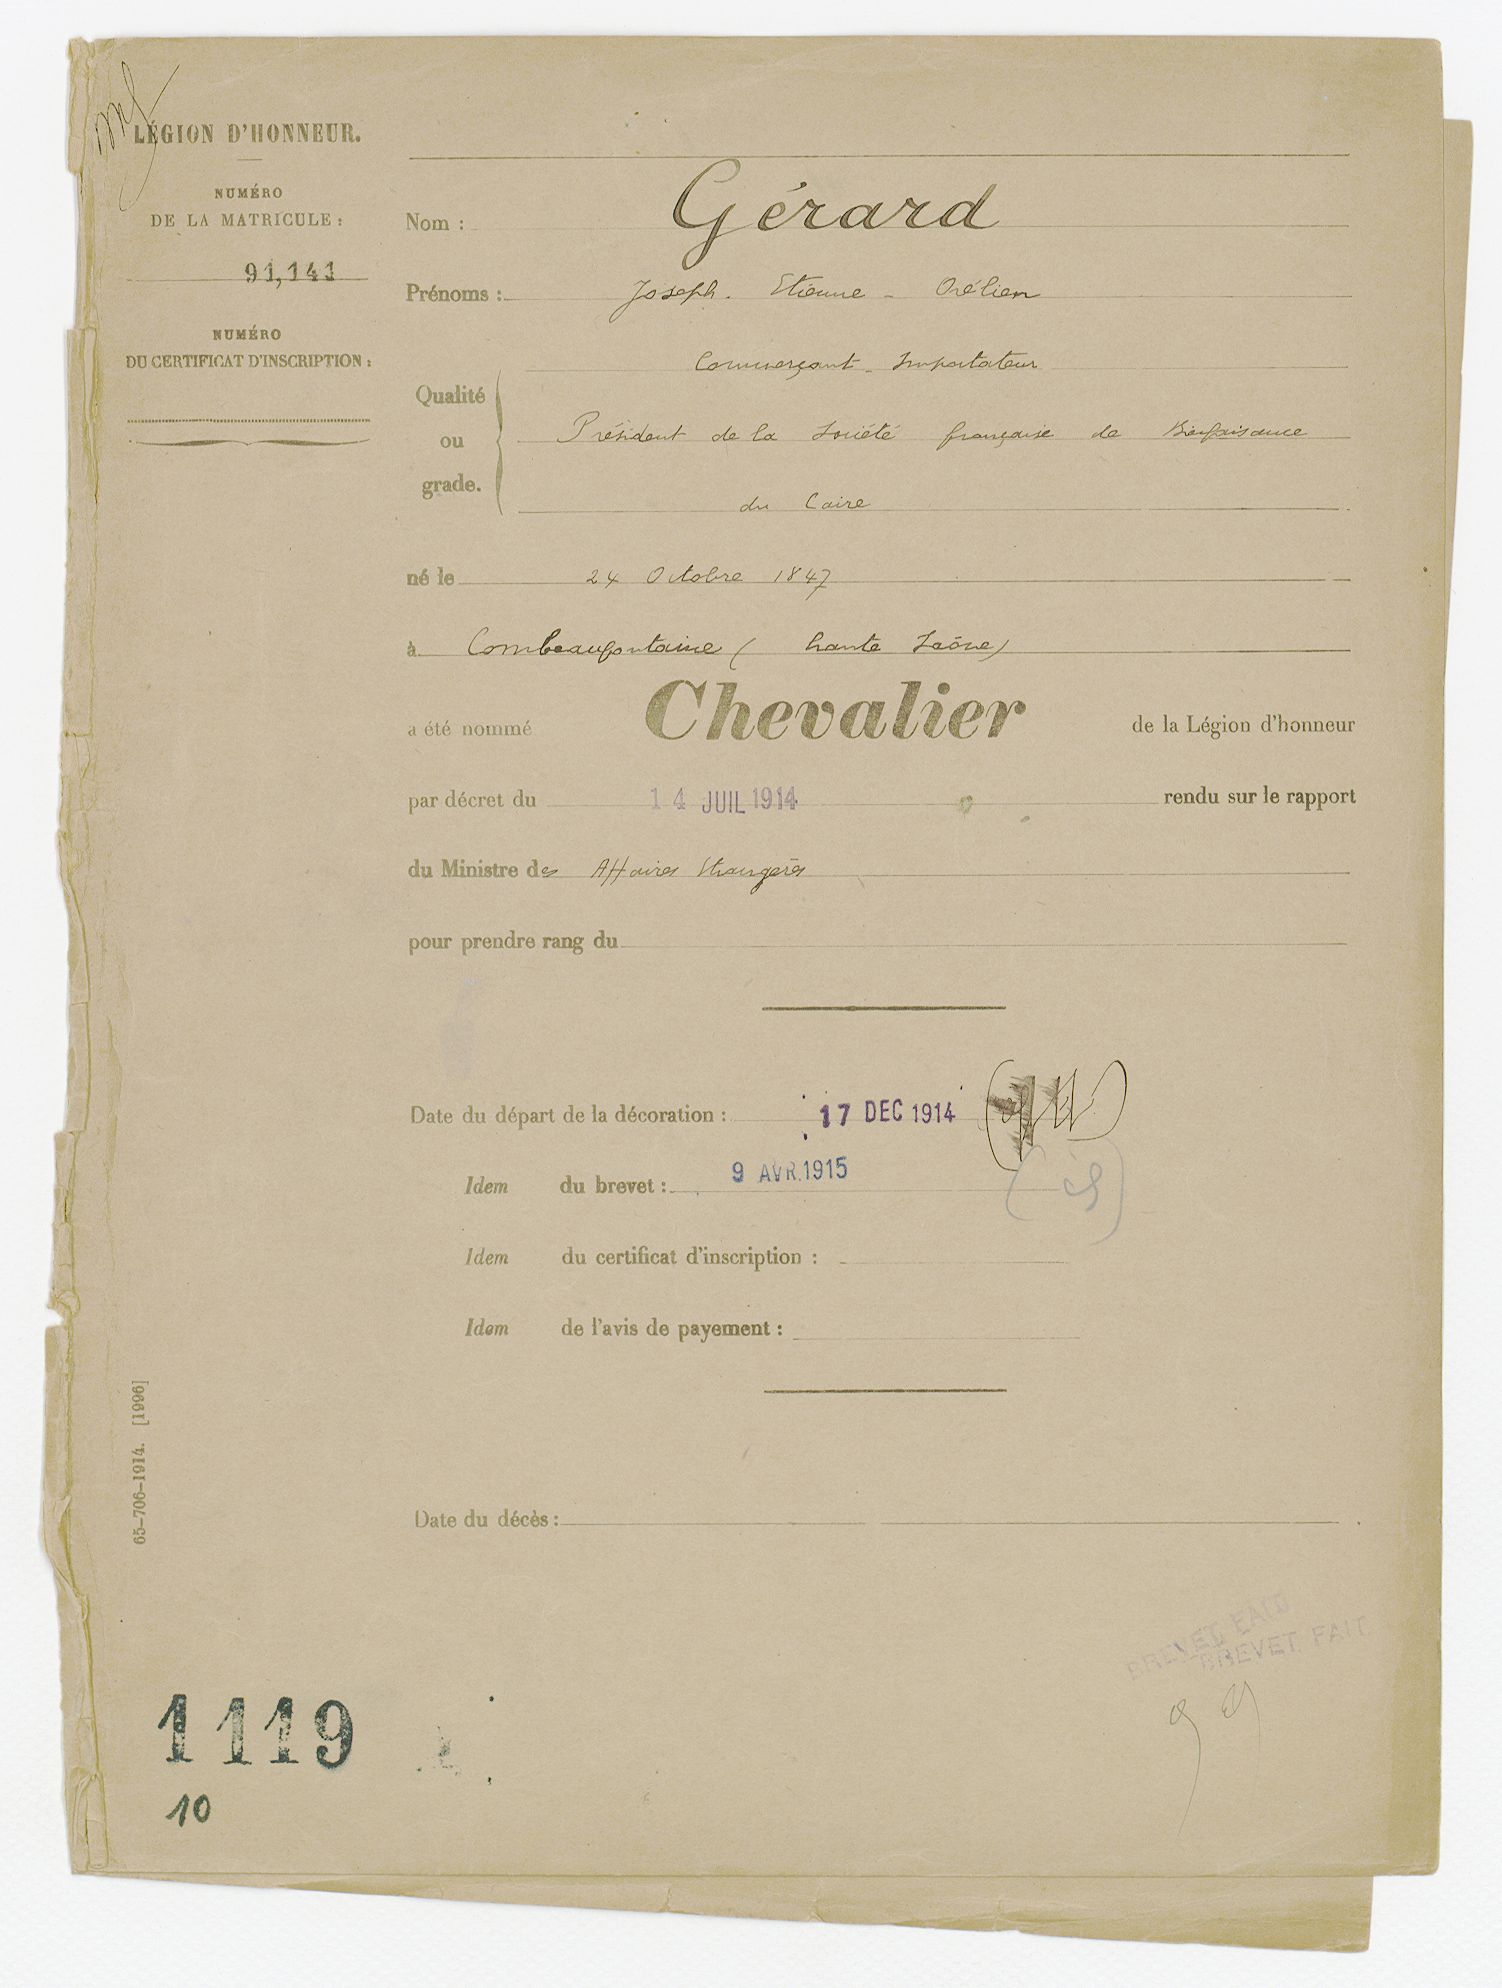 LÉGION D'HONNEUR.
NUMÉRO
DE LA MATRICULE :
91,141
NUMÉRO
DU CERTIFICAT D'INSCRIPTION :
Nom : Gérard
Prénoms : Joseph - Etienne - Orélien
Commerçant - Importateur
Qualité
ou
grade.
Président de la Société française de Bienfaisance
du Caire
né le 24 Octobre 1847
à Combeaufontaine (haute Saône)
a été nommé Chevalier de la Légion d'honneur
par décret du 14 JUIL 1914 rendu sur le rapport
du Ministre des Affaires Etrangères
pour prendre rang du
Date du départ de la décoration : 17 DEC 1914
Idem du brevet : 9 AVR. 1915
Idem du certificat d'inscription :
Idem de l'avis de payement :
65-706-1914. [1996]
Date du décès :
BREVET FAIT
BREVET FAIT
1119
10